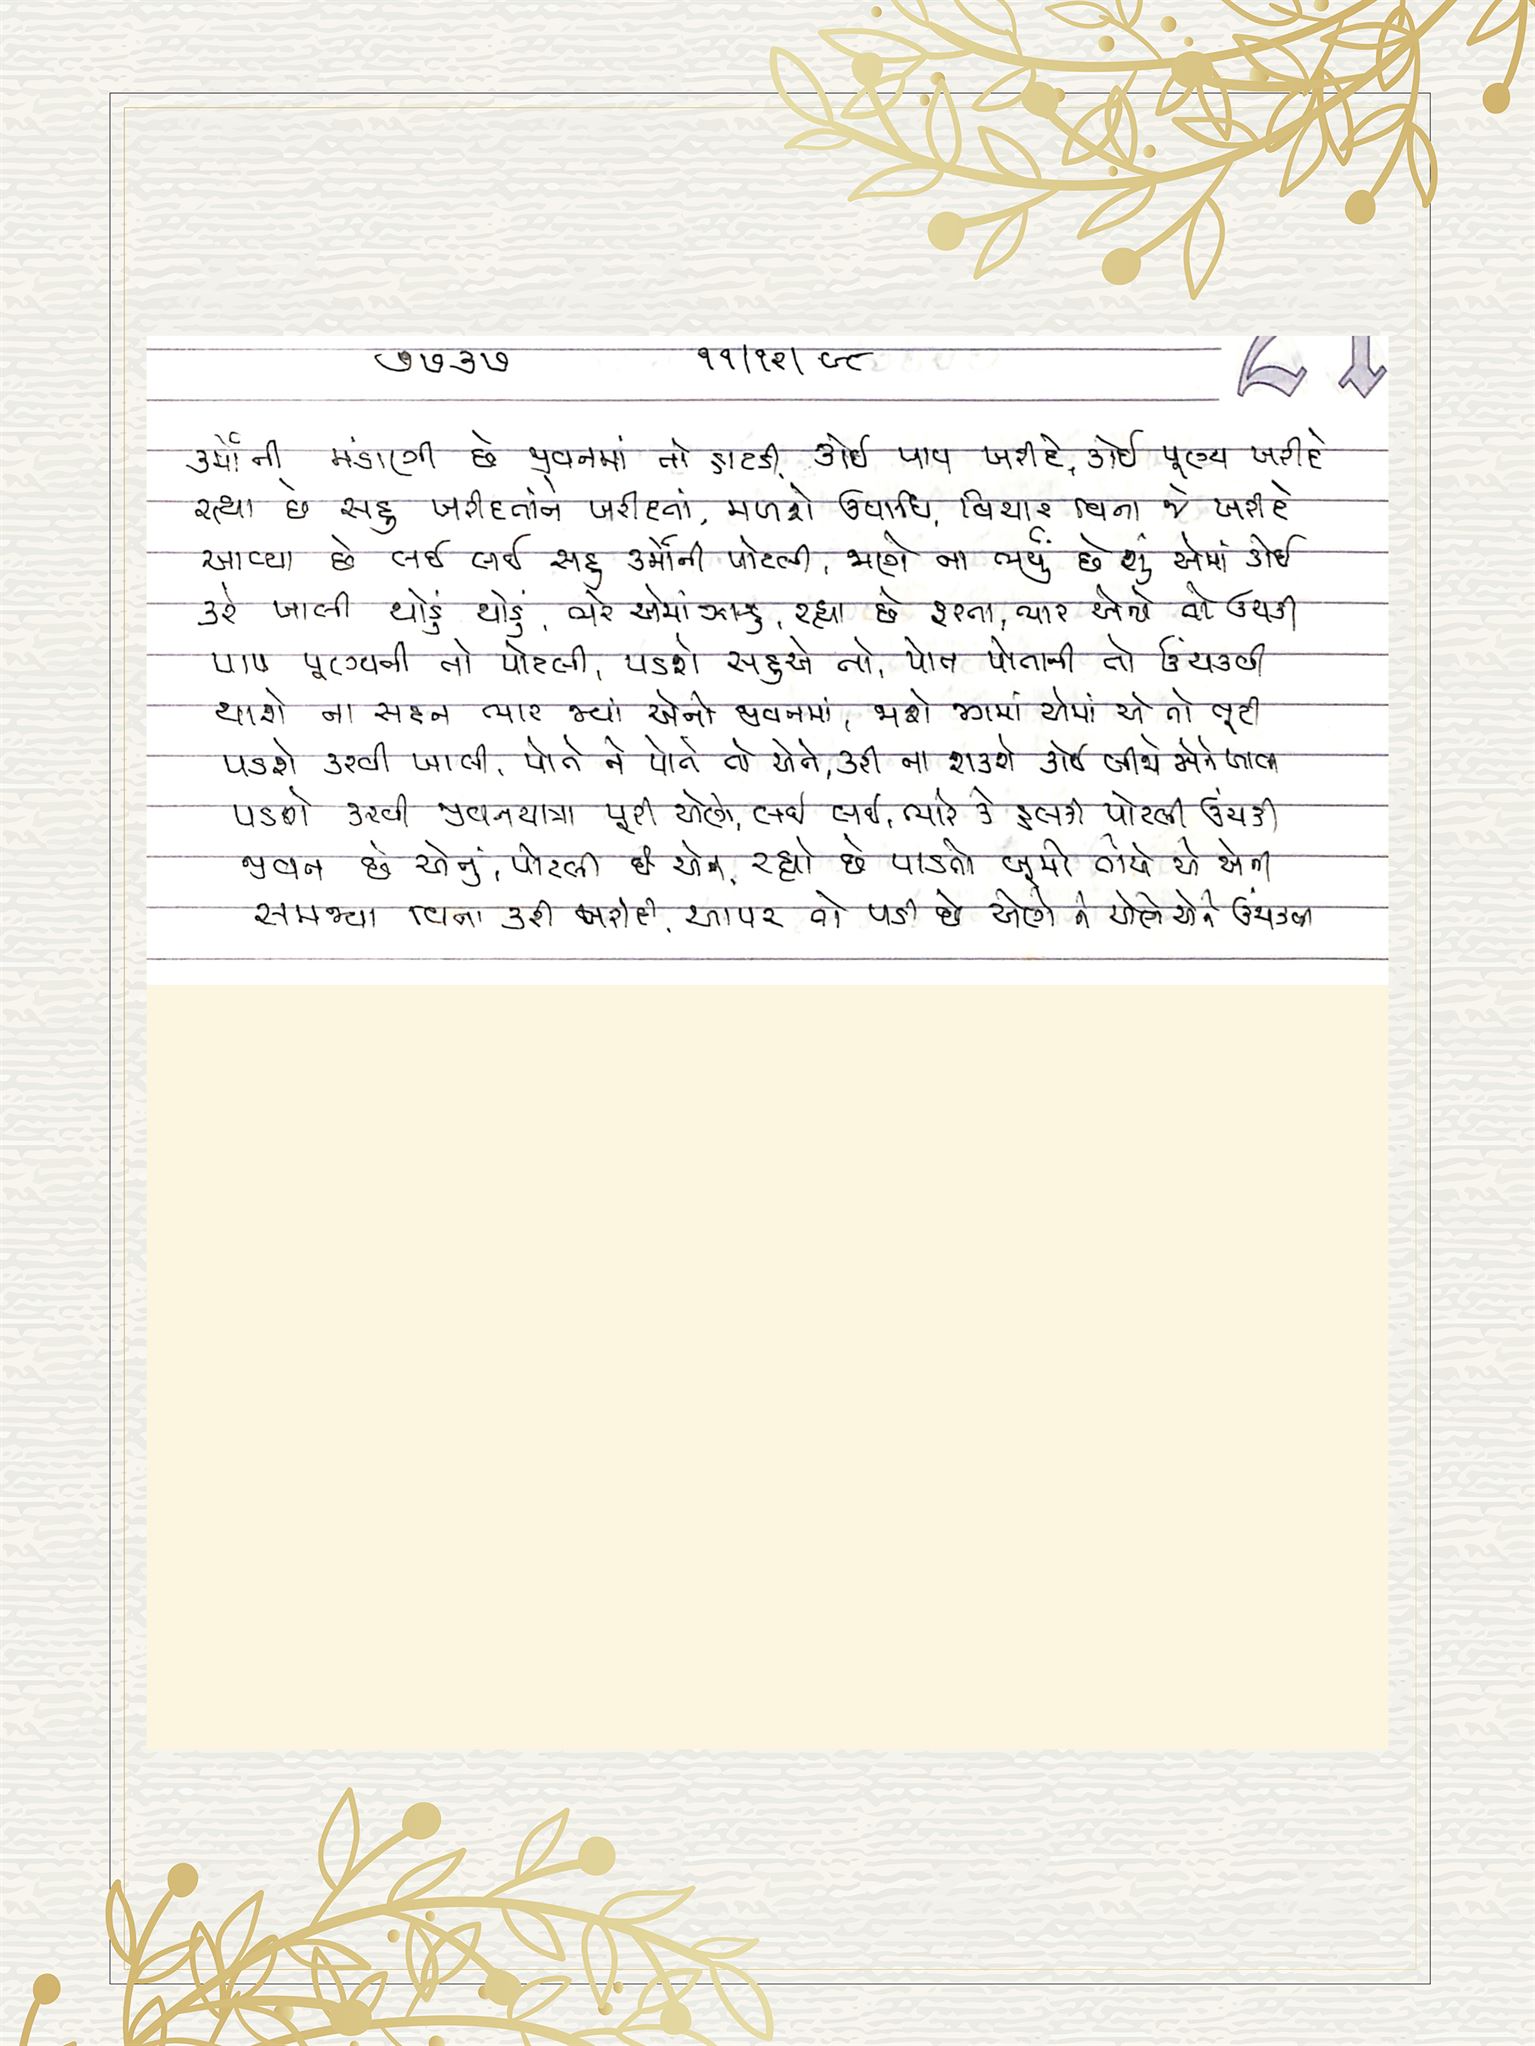 ૭૭૩૭ ૧૧/૧૨/૯૮
કર્મોની મંડાણી છે જીવનમાં તો હાટડી, કોઈ પાપ ખરીદે, કોઈ પૂણ્ય ખરીદે
રહ્યા છે સહુ ખરીદતાંને ખરીદતાં, મળશે ઉપાધિ, વિચાર વિના જે ખરીદે
આવ્યા છે લઈ લઈ સહુ કર્મોની પોટલી, જાણે ના ભર્યું છે શું એમાં કોઈ
કરે ખાલી થોડું થોડું, ભરે એમાં ઝાઝું, રહ્યા છે ફરતા, ભાર એનો તો ઉંચકી
પાપ પૂણ્યની તો પોટલી, પડશે સહુએ તો, પોત પોતાની તો ઉંચકવી
થાશે ના સહન ભાર જ્યાં એનો જીવનમાં, જાશે જગમાં એમાં એ તો તૂટી
પડશે કરવી ખાલી, પોતે ને પોતે તો એને, કરી ના શકશે કોઈ બીજો એને ખાલી
પડશે કરવી જીવનયાત્રા પૂરી એણે, લઈ લઈ, ભારે કે હલકી પોટલી ઉંચકી
જીવન છે એનું, પોટલી છે એની, રહ્યો છે પાડતો બૂમો તોયે એ એની
સમજ્યા વિના કરી ખરીદી, આખર તો પડી છે એણે ને એણે એને ઉંચકવી